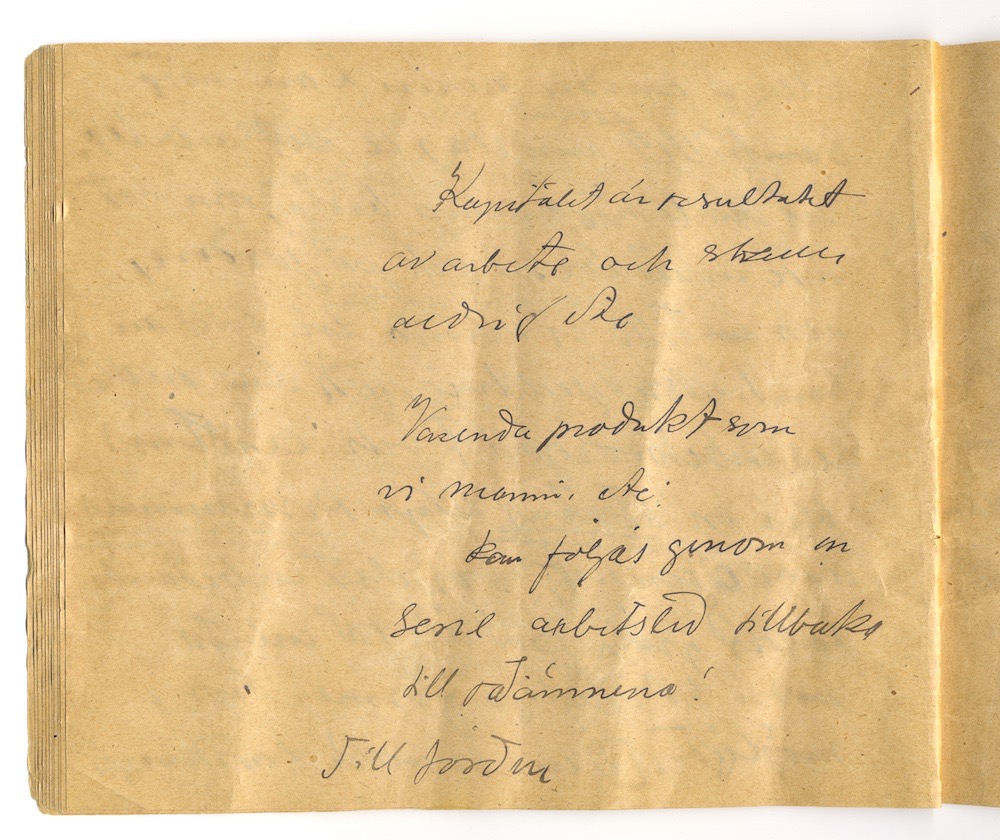 Kapitalet är resultatet
av arbete och
aldrig etc
Varenda produkt som
vi etc.
kan följas genom en
serie arbetsled tillbaka
till råämnena!
Till jorden